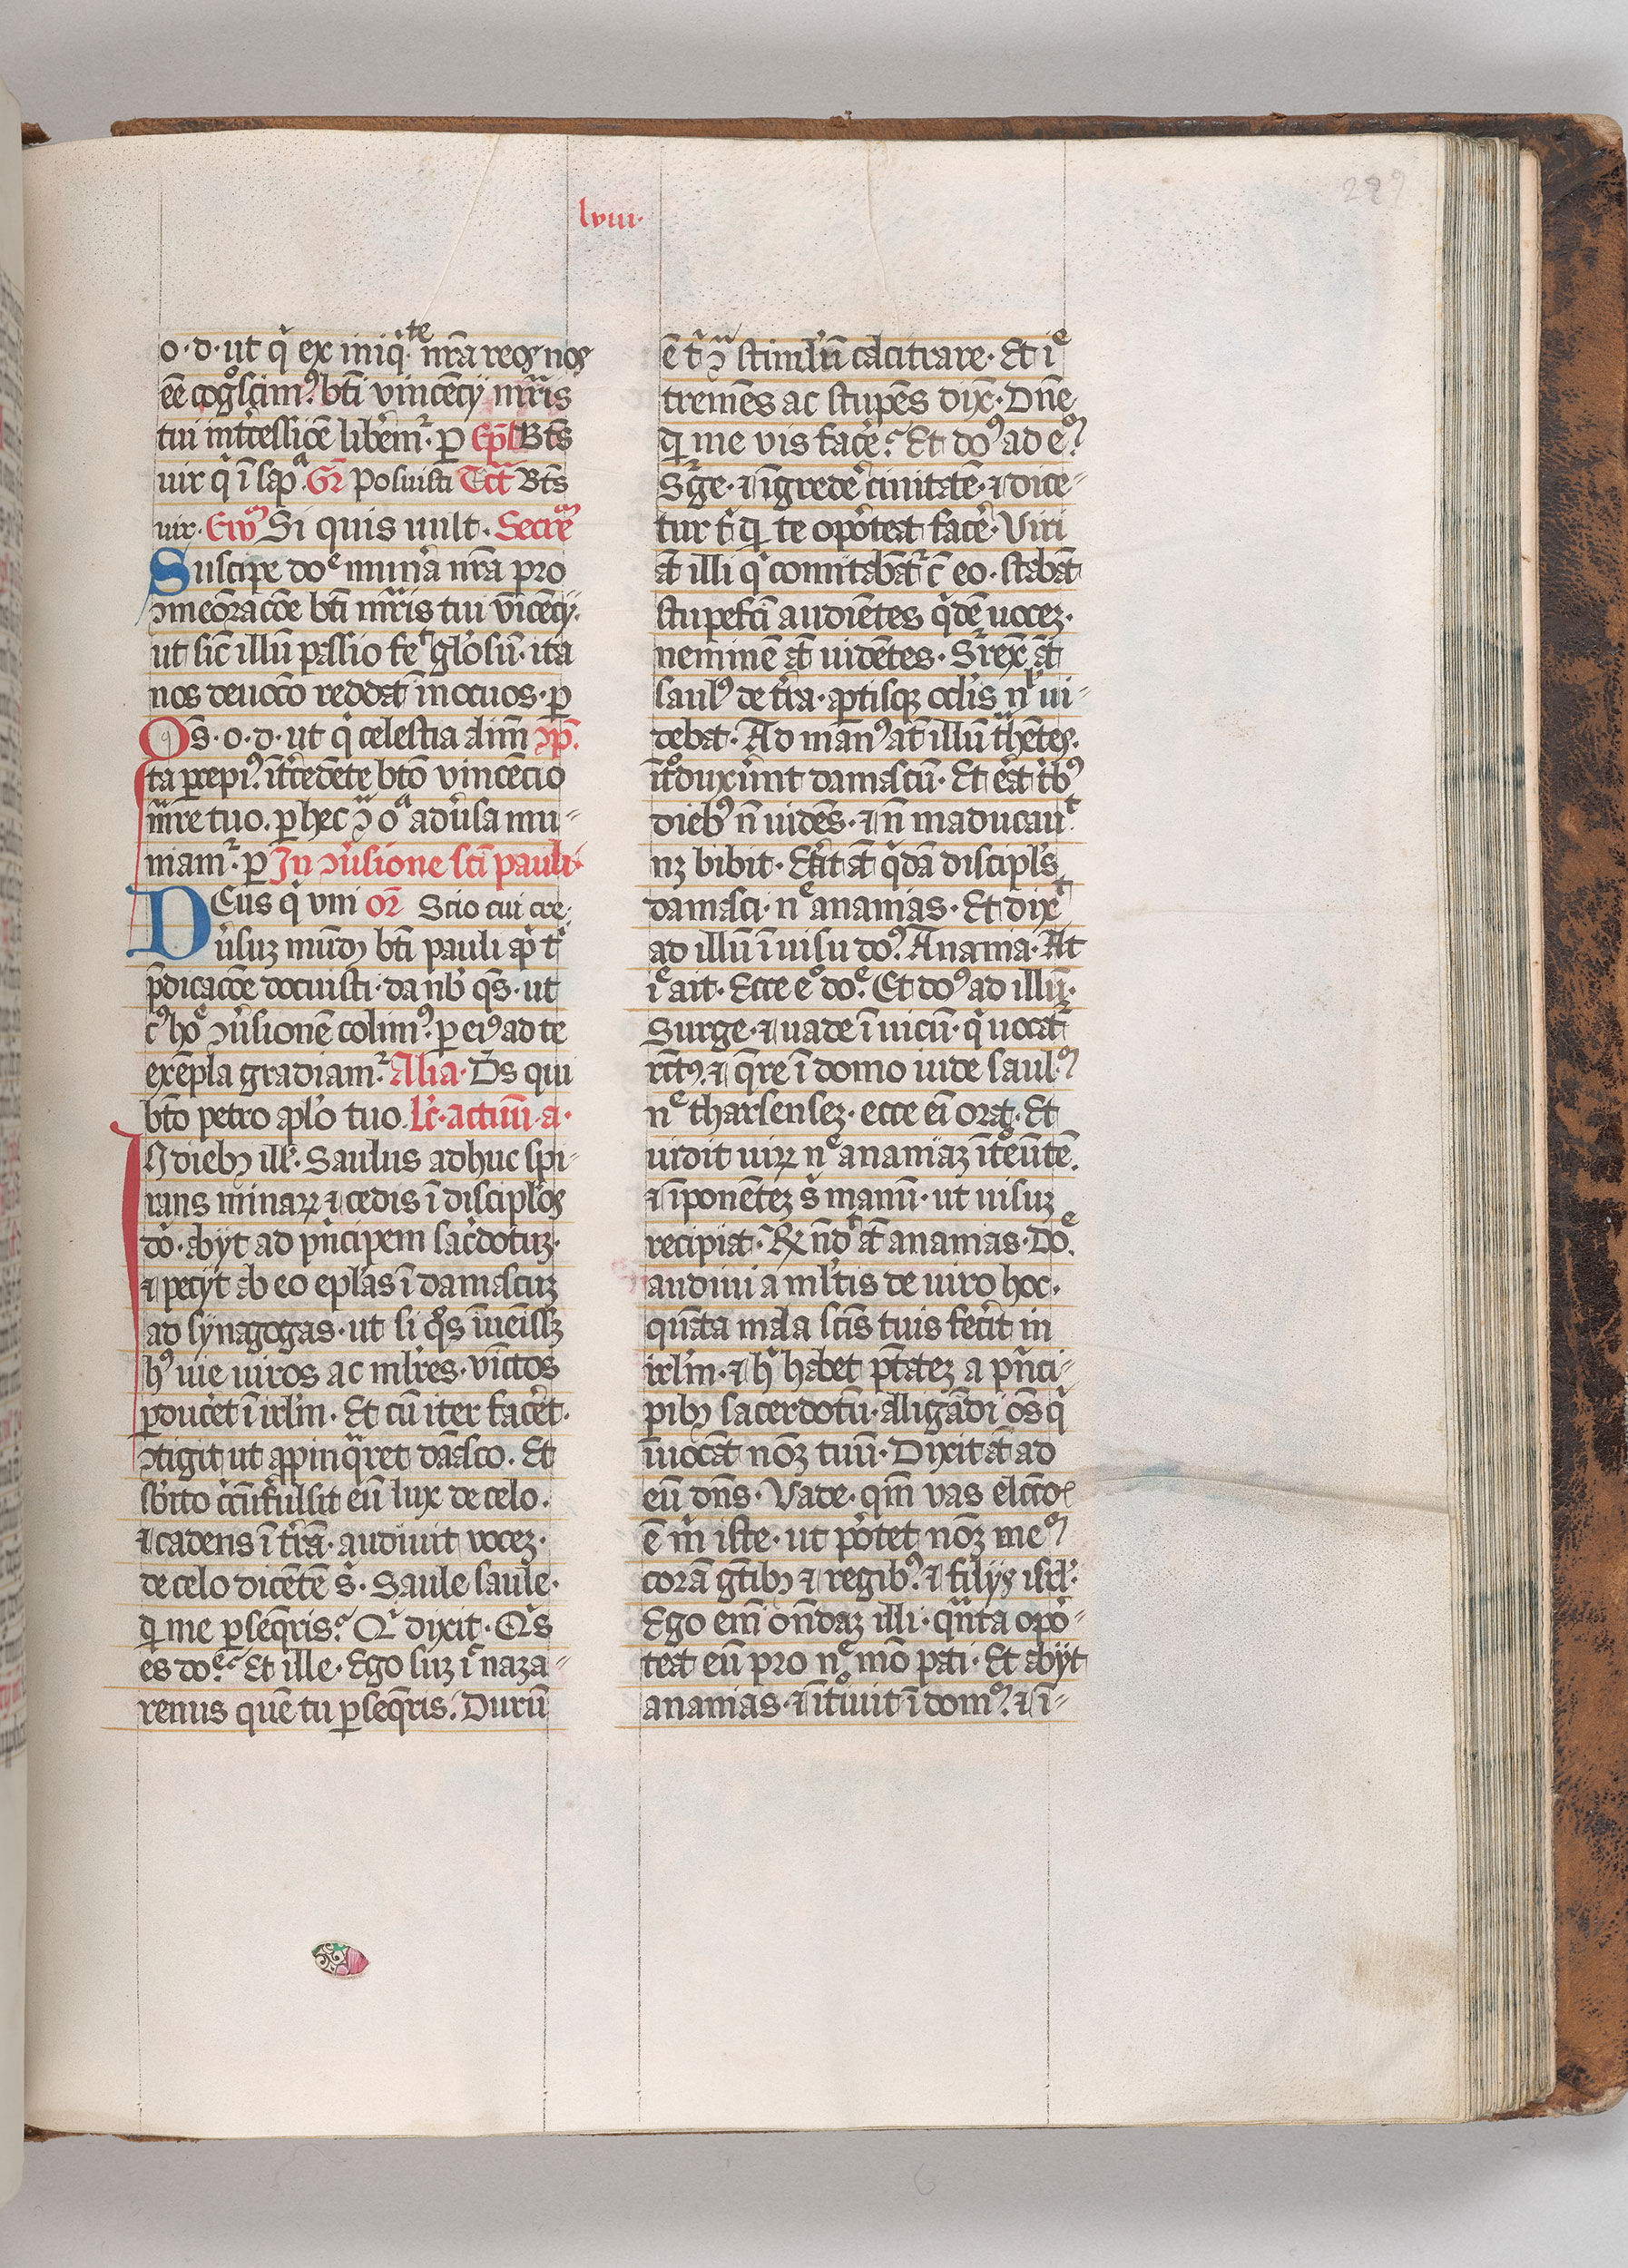 lviii·
289
o·d·ut q̇ ex iniq̇·te nr̄a reos nos
ēe cog̊scim⁹· bt̄i vincēcij mr̄is
tui int̄cessiōe lib̄em²· p̱ Ep̄la Bt̄s
uir q̇ ī sap̄ᵃ Gr̄ Posuisti Tct̄ Bt̄s
uir· Ew̄ᵐ Si quis uult· Secreᵃ̄
Suscipe doᵉ mun̄a nr̄a pro
ꝯmeōracōe bt̄i mr̄is tui vīcēcij·
ut sic̄ illū passio feᵗ glōsū· ita
nos deuocō reddat īnocuos· p̱
Qs̄·o·d·ut q̇ celestia alim̄ ꝯp̄·
ta p̱cepi⁹· īt̄cedēte bt̄o vincēcio
mr̄e tuo· p̱ hec ꝯ̄ oᵃ adūsa mu-
niam²· p̱ In ꝯūsione sc̄i pauli·
DEus q̇ vni or̄ Scio cui cre·
ūsuz mūdꝫ bt̄i pauli ap̄i tⁱ
p̄dicacōe docuisti· da nb̄ qs̄· ut
c⁹ hoᵉ ꝯūsionē colim⁹· p̱ ei⁹ ad te
exēpla gradiam²· Alia· Ds̄ qui
bt̄o petro apl̄o tuo· Lc̄· actuū·a·
In diebꝫ ill̄· Saulus adhuc spi-
rans minaꝝ ⁊ cedis ī discipl̄os
dō· abijt ad pn̄cipem sac̄dotuꝫ·
⁊ pecijt ab eo epl̄as ī damascuꝫ
ad synagogas· ut si q̊s īueīssꝫ
h⁹ uie uiros ac ml̄res· vīctos
p̱duc̄et ī irl̄m· Et cū iter fac̄et·
ꝯtigit ut app̄inq̄ret dāasco· Et
sb̄ito c̄cūfulsit eū lux de celo·
⁊ cadens ī tr̄ā· audiuit uocez·
de celo dicētē s̄· Saule saule·
qͥ me p̱seq̄ris? Qⁱ dixit· Qⁱs
es doᵉ? Et ille· Ego suꝫ iᶜ naza-
renus quē tu p̱seq̄ris· Durū
ē t̄ ꝯ̄ stiml̄ū calcitrare· Et iᵉ
tremēs ac stupēs dix̄· Dn̄e·
qͥ me vis fac̄e? Et do⁹ ad eᵐ·
S²ge· ⁊ īgred̄e ciuitatē· ⁊ dice-
tur t̄ qͥ te opōteat fac̄e· Viri
at̄ illi q̇ comitabāt² c̄ eo· stabāt
stupefc̄i audiētes q̇dē uocez·
neminē at̄ uidētes· S²rex̄ at̄
saul⁹ de tr̄a· ap̱tisqꝫ ocl̄is nˡ ui-
debat· Ad man⁹ at̄ illū t̄hētes·
īt̊duxūnt damascū· Et ēat tb⁹
dieb⁹ n̄ uidēs· ⁊ n̄ māducauᵗ·
nꝫ bibit· Eāt at̄ q̇dā discipl̄s
damasci· nᵉ ananias· Et dixᵗ
ad illū ī uisu do⁹· Anania· At
iᵉ ait· Ecce e̊ doᵉ· Et do⁹ ad illū·
Surge· ⁊ uade ī uicū· q̇ uocat²
rct̄⁹· ⁊ q̄re ī domo iude saulᵐ
nᵉ tharsensez· ecce eī orat· Et
uidit uiꝝ nᵉ ananiāz īt̊eūtē·
⁊ īponētez s̄ manū· ut uisuꝫ
recipiat· R̄ndᵗ at̄ ananias· Doᵉ·
audiui a ml̄tis de uiro hoc·
quāta mala sc̄is tuis fec̄it in
irl̄m· ⁊ hⁱ habet pt̄atez a pn̄ci-
pibꝫ sacerdotū· alligādi oēs q̇
īuocāt nōꝫ tuū· Dixit at̄ ad
eū dn̄s· Vade· qm̄ vas elcc̄oᵉ
ē m̄ iste· ut pōtet nōꝫ meᵐ
corā gētibꝫ ⁊ regib⁹· ⁊ filijs isrl̄·
Ego em̄ on̄daꝫ illi· qn̄ta opō-
teat eū pro nᵉ mō pati· Et abijt
ananias· ⁊ īt̊iuit ī domᵐ· ⁊ ī-